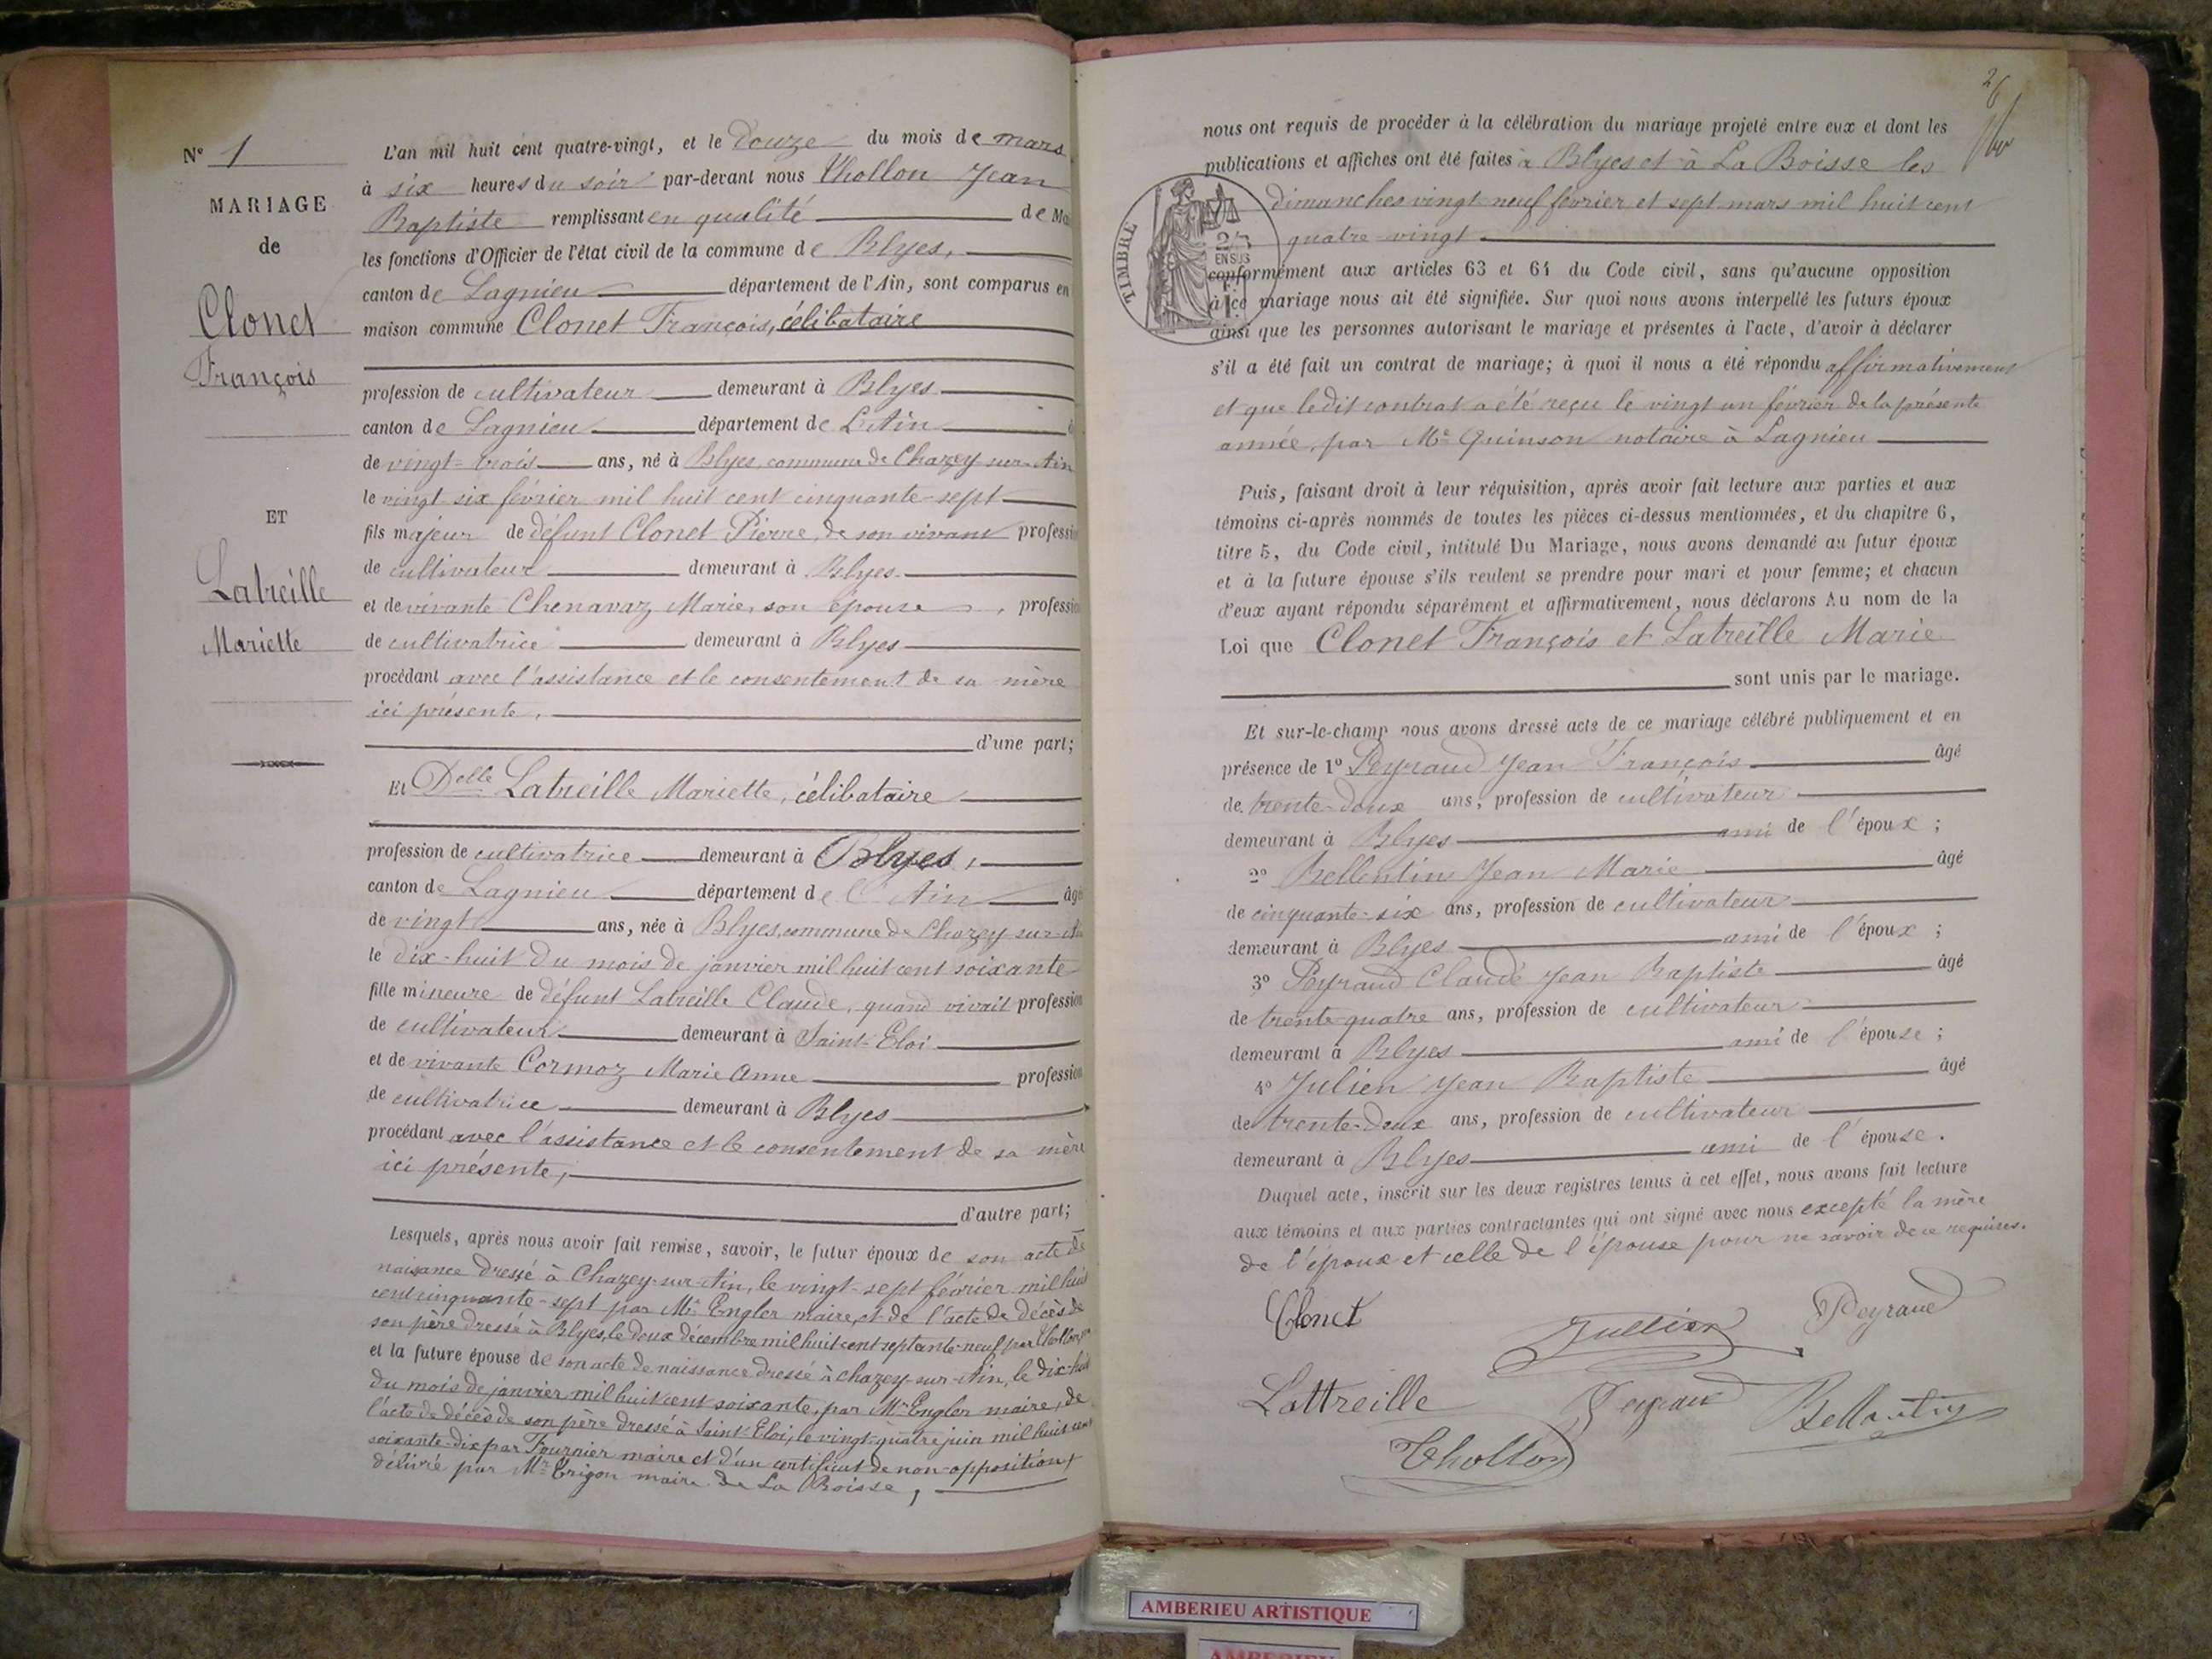 N° 1
MARIAGE
de
Clonet
François
ET
Latreille
Mariette
L'an mil huit cent quatre-vingt, et le douze du mois de mars
à six heures du soir par-devant nous Chollon Jean
Baptiste remplissant en qualité de Ma
les fonctions d'Officier de l'état civil de la commune de Blyes,
canton de Lagnieu département de l'Ain, sont comparus en
maison commune Clonet François, célibataire
profession de cultivateur demeurant à Blyes
canton de Lagnieu département de L'Ain
de vingt-trois ans, né à Blyes, commune de Chazey-sur-Ain
le vingt six février mil huit cent cinquante-sept
fils majeur de défunt Clonet Pierre, de son vivant profession
de cultivateur demeurant à Blyes
et de vivante Chenavaz Marie, son épouse, profession
de cultivatrice demeurant à Blyes
procédant avec l'assistance et le consentement de sa mère
ici présente,
d'une part;
Et Delle Latreille Mariette, célibataire
profession de cultivatrice demeurant à Blyes,
canton de Lagnieu département de l'Ain âgé
de vingt ans, née à Blyes, commune de Chazey-sur-Ain
le dix-huit du mois de janvier mil huit cent soixante
fille mineure de défunt Latreille Claude, quand vivait profession
de cultivateur demeurant à Saint-Eloi
et de vivante Cormoz Marie Anne profession
de cultivatrice demeurant à Blyes
procédant avec l'assistance et le consentement de sa mère
ici présente,
d'autre part;
Lesquels, après nous avoir fait remise, savoir, le futur époux de son acte de
naissance dressé à Chazey-sur-Ain, le vingt-sept février mil huit
cent cinquante-sept par Mr Engler maire, et de l'acte de décès de
son père dressé à Blyes, le deux décembre mil huit cent septante-neuf par Chollon
et la future épouse de son acte de naissance dressé à Chazey-sur-Ain, le dix-huit
du mois de janvier mil huit cent soixante, par Mr Engler maire, de
l'acte de décès de son père dressé à Saint-Eloi, le vingt-quatre juin mil huit cent
soixante-dix par Fournier maire et d'un certificat de non-opposition
délivré par Mr maire de La Boisse,
26
nous ont requis de procéder à la célébration du mariage projeté entre eux et dont les
publications et affiches ont été faites à Blyes et à La Boisse les
dimanches vingt neuf février et sept mars mil huit cent
quatre-vingt
TIMBRE
EN SUS
conformément aux articles 63 et 64 du Code civil, sans qu'aucune opposition
à ce mariage nous ait été signifiée. Sur quoi nous avons interpellé les futurs époux
ainsi que les personnes autorisant le mariage et présentes à l'acte, d'avoir à déclarer
s'il a été fait un contrat de mariage; à quoi il nous a été répondu affirmativement
et que ledit contrat a été reçu le vingt un février de la présente
année, par Me Quinson notaire à Lagnieu
Puis, faisant droit à leur réquisition, après avoir fait lecture aux parties et aux
témoins ci-après nommés de toutes les pièces ci-dessus mentionnées, et du chapitre 6,
titre 5, du Code civil, intitulé Du Mariage, nous avons demandé au futur époux
et à la future épouse s'ils veulent se prendre pour mari et pour femme; et chacun
d'eux ayant répondu séparément et affirmativement, nous déclarons Au nom de la
Loi que Clonet François et Latreille Marie
sont unis par le mariage.
Et sur-le-champ nous avons dressé acte de ce mariage célébré publiquement et en
présence de 1° Peyraud Jean François âgé
de trente-deux ans, profession de cultivateur
demeurant à Blyes ami de l'époux;
2° Bellentin Jean Marie âgé
de cinquante-six ans, profession de cultivateur
demeurant à Blyes ami de l'époux;
3° Peyraud Claude Jean Baptiste âgé
de trente-quatre ans, profession de cultivateur
demeurant à Blyes ami de l'épouse;
4° Julien Jean Baptiste âgé
de trente-deux ans, profession de cultivateur
demeurant à Blyes ami de l'épouse.
Duquel acte, inscrit sur les deux registres tenus à cet effet, nous avons fait lecture
aux témoins et aux parties contractantes qui ont signé avec nous excepté la mère
de l'époux et celle de l'épouse pour ne savoir de ce requises.
Clonet Jullien Peyraud
Lattreille Peyraud Bellantin
Chollon
AMBERIEU ARTISTIQUE
AMBERIEU